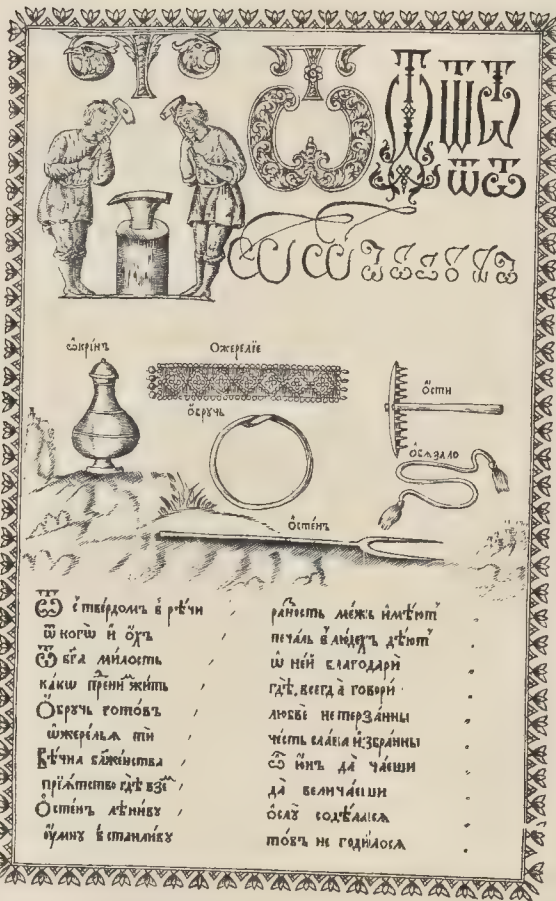 ѡ҆крі́нъ
Ожерелїе
о҆́бручь
о҆́сти
ѻ҆бѧзало
о҆сте́нъ
Ѿ с̾ тве́рдомъ в̾ рѣ́чи
ѿ когѡ̀ и҆ ѹ҆́хъ
Ѿ бг҃а ми́лость
ка́кѡ жи́ть
О҆́бручь гото́въ
ѡ҆жере́лья ти
Вѣ́чна бл҃же́нства
прїѧ́тство гдѣ̀
О҆сте́нъ лѣни́вꙋ
ѹ҆́мнꙋ в̾станли́вꙋ
ра́ность ме́жъ и҆мѣ́ютъ
печа́ль в̾ люде́хъ дѣ́ютъ
ѡ҆ не́й благодарѝ
гдѣ̀, всегда̀ говорѝ
любвѐ не терза́нны
че́сть сла́ва и҆збра́нны
ѿ да̀ ча́еши
да̀ велича́еши
о҆слꙋ̀ содѣ́лалсѧ
не годи́лосѧ